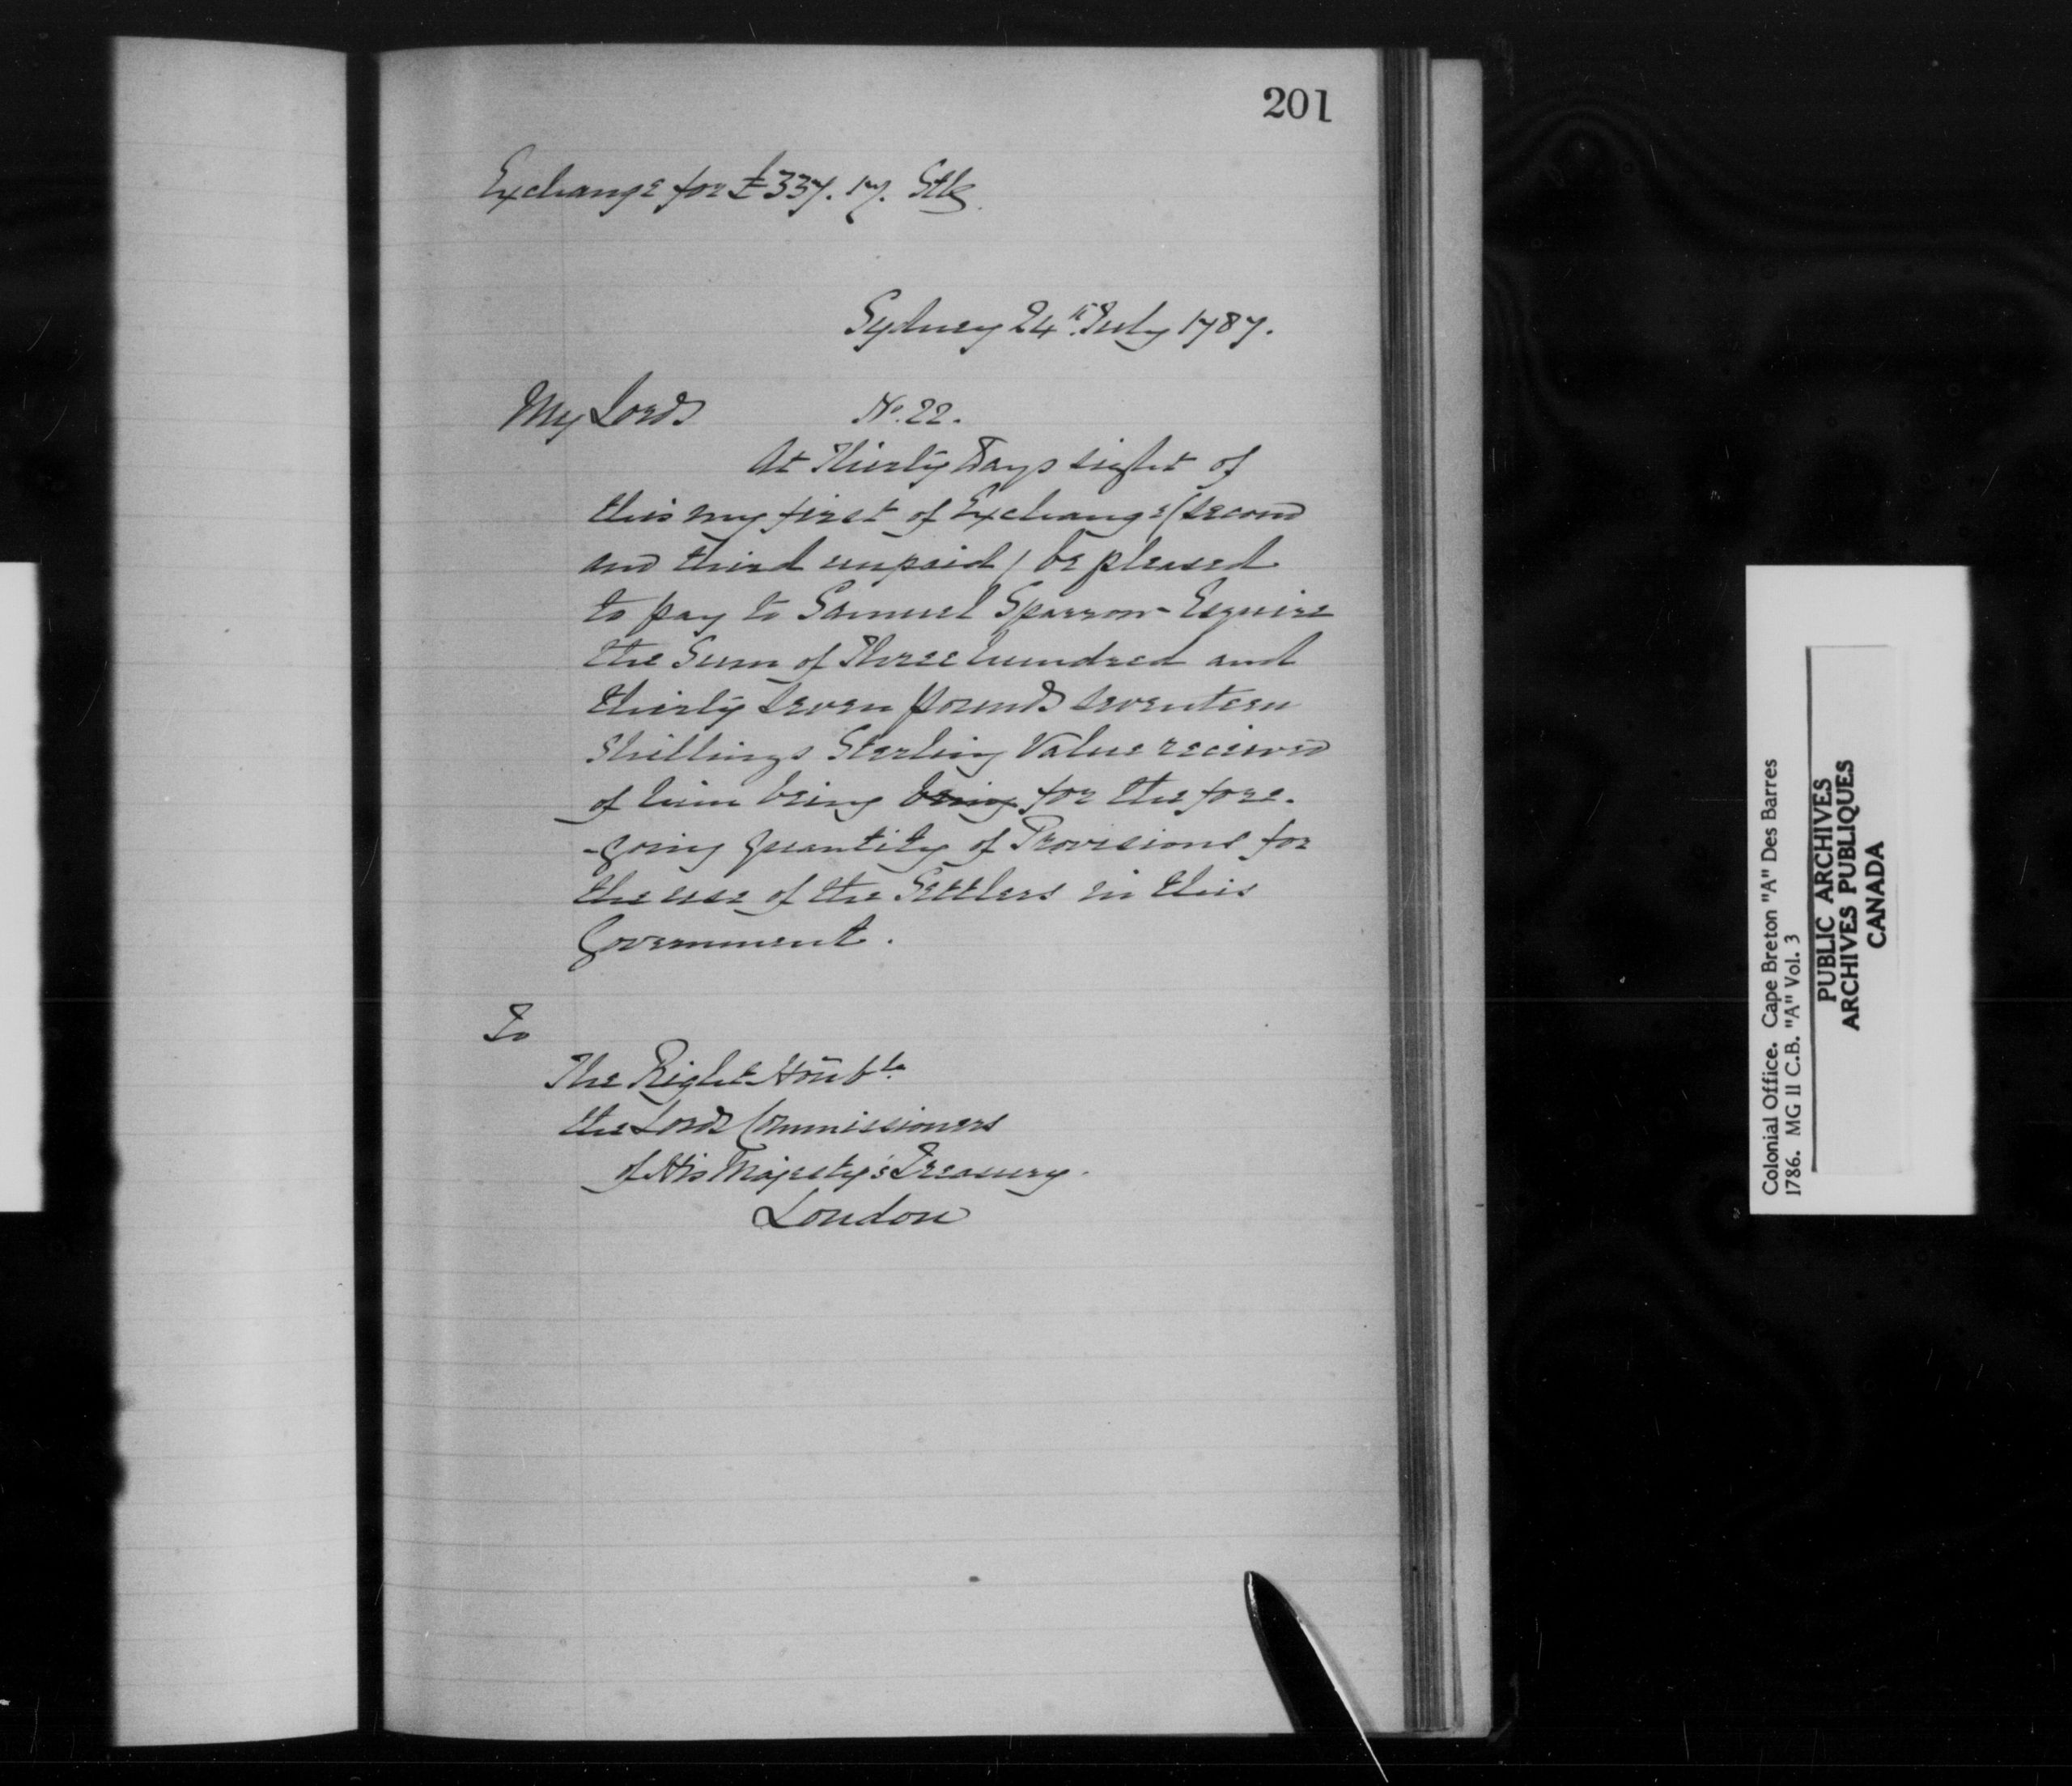 201
Exchange for £337. 17. Stlg.
Sydney 24th July 1787.
My Lords No. 22.
At Thirty Days sight of
this my first of Exchange (second
and third unpaid) be pleased
to pay to Samuel Sparrow Esquire
the Sum of Three hundred and
thirty seven pounds seventeen
Shillings Sterling Value received
of him being being for the fore-
-going quantity of Provisions for
the use of the Settlers in this
Government.
To
The Right Honble
the Lords Commissioners
of His Majesty's Treasury.
London
Colonial Office. Cape Breton "A" Des Barres
1786. MG 11 C.B. "A" Vol. 3
PUBLIC ARCHIVES
ARCHIVES PUBLIQUES
CANADA